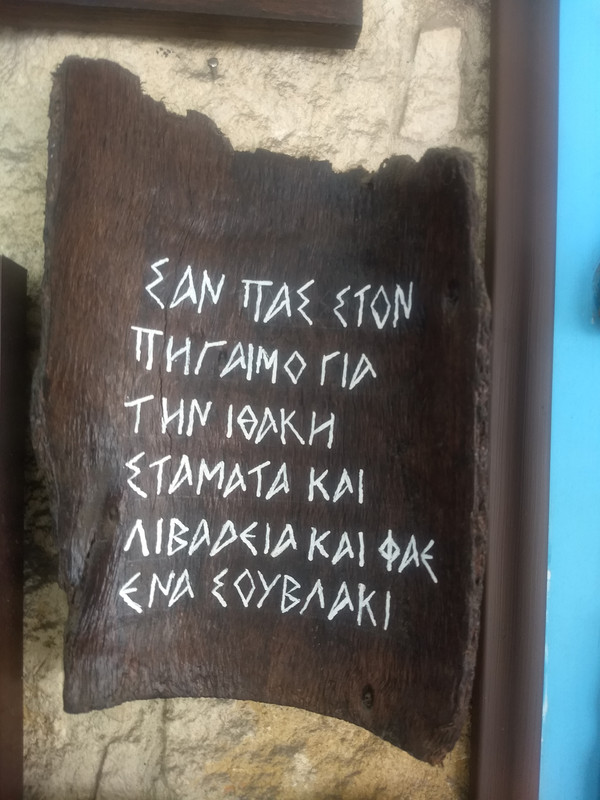 ΣΑΝ ΠΑΣ ΣΤΟΝ
ΠΗΓΑΙΜΟ ΓΙΑ
ΤΗΝ ΙΘΑΚΗ
ΣΤΑΜΑΤΑ ΚΑΙ
ΛΙΒΑΔΕΙΑ ΚΑΙ ΦΑΕ
ΕΝΑ ΣΟΥΒΛΑΚΙ